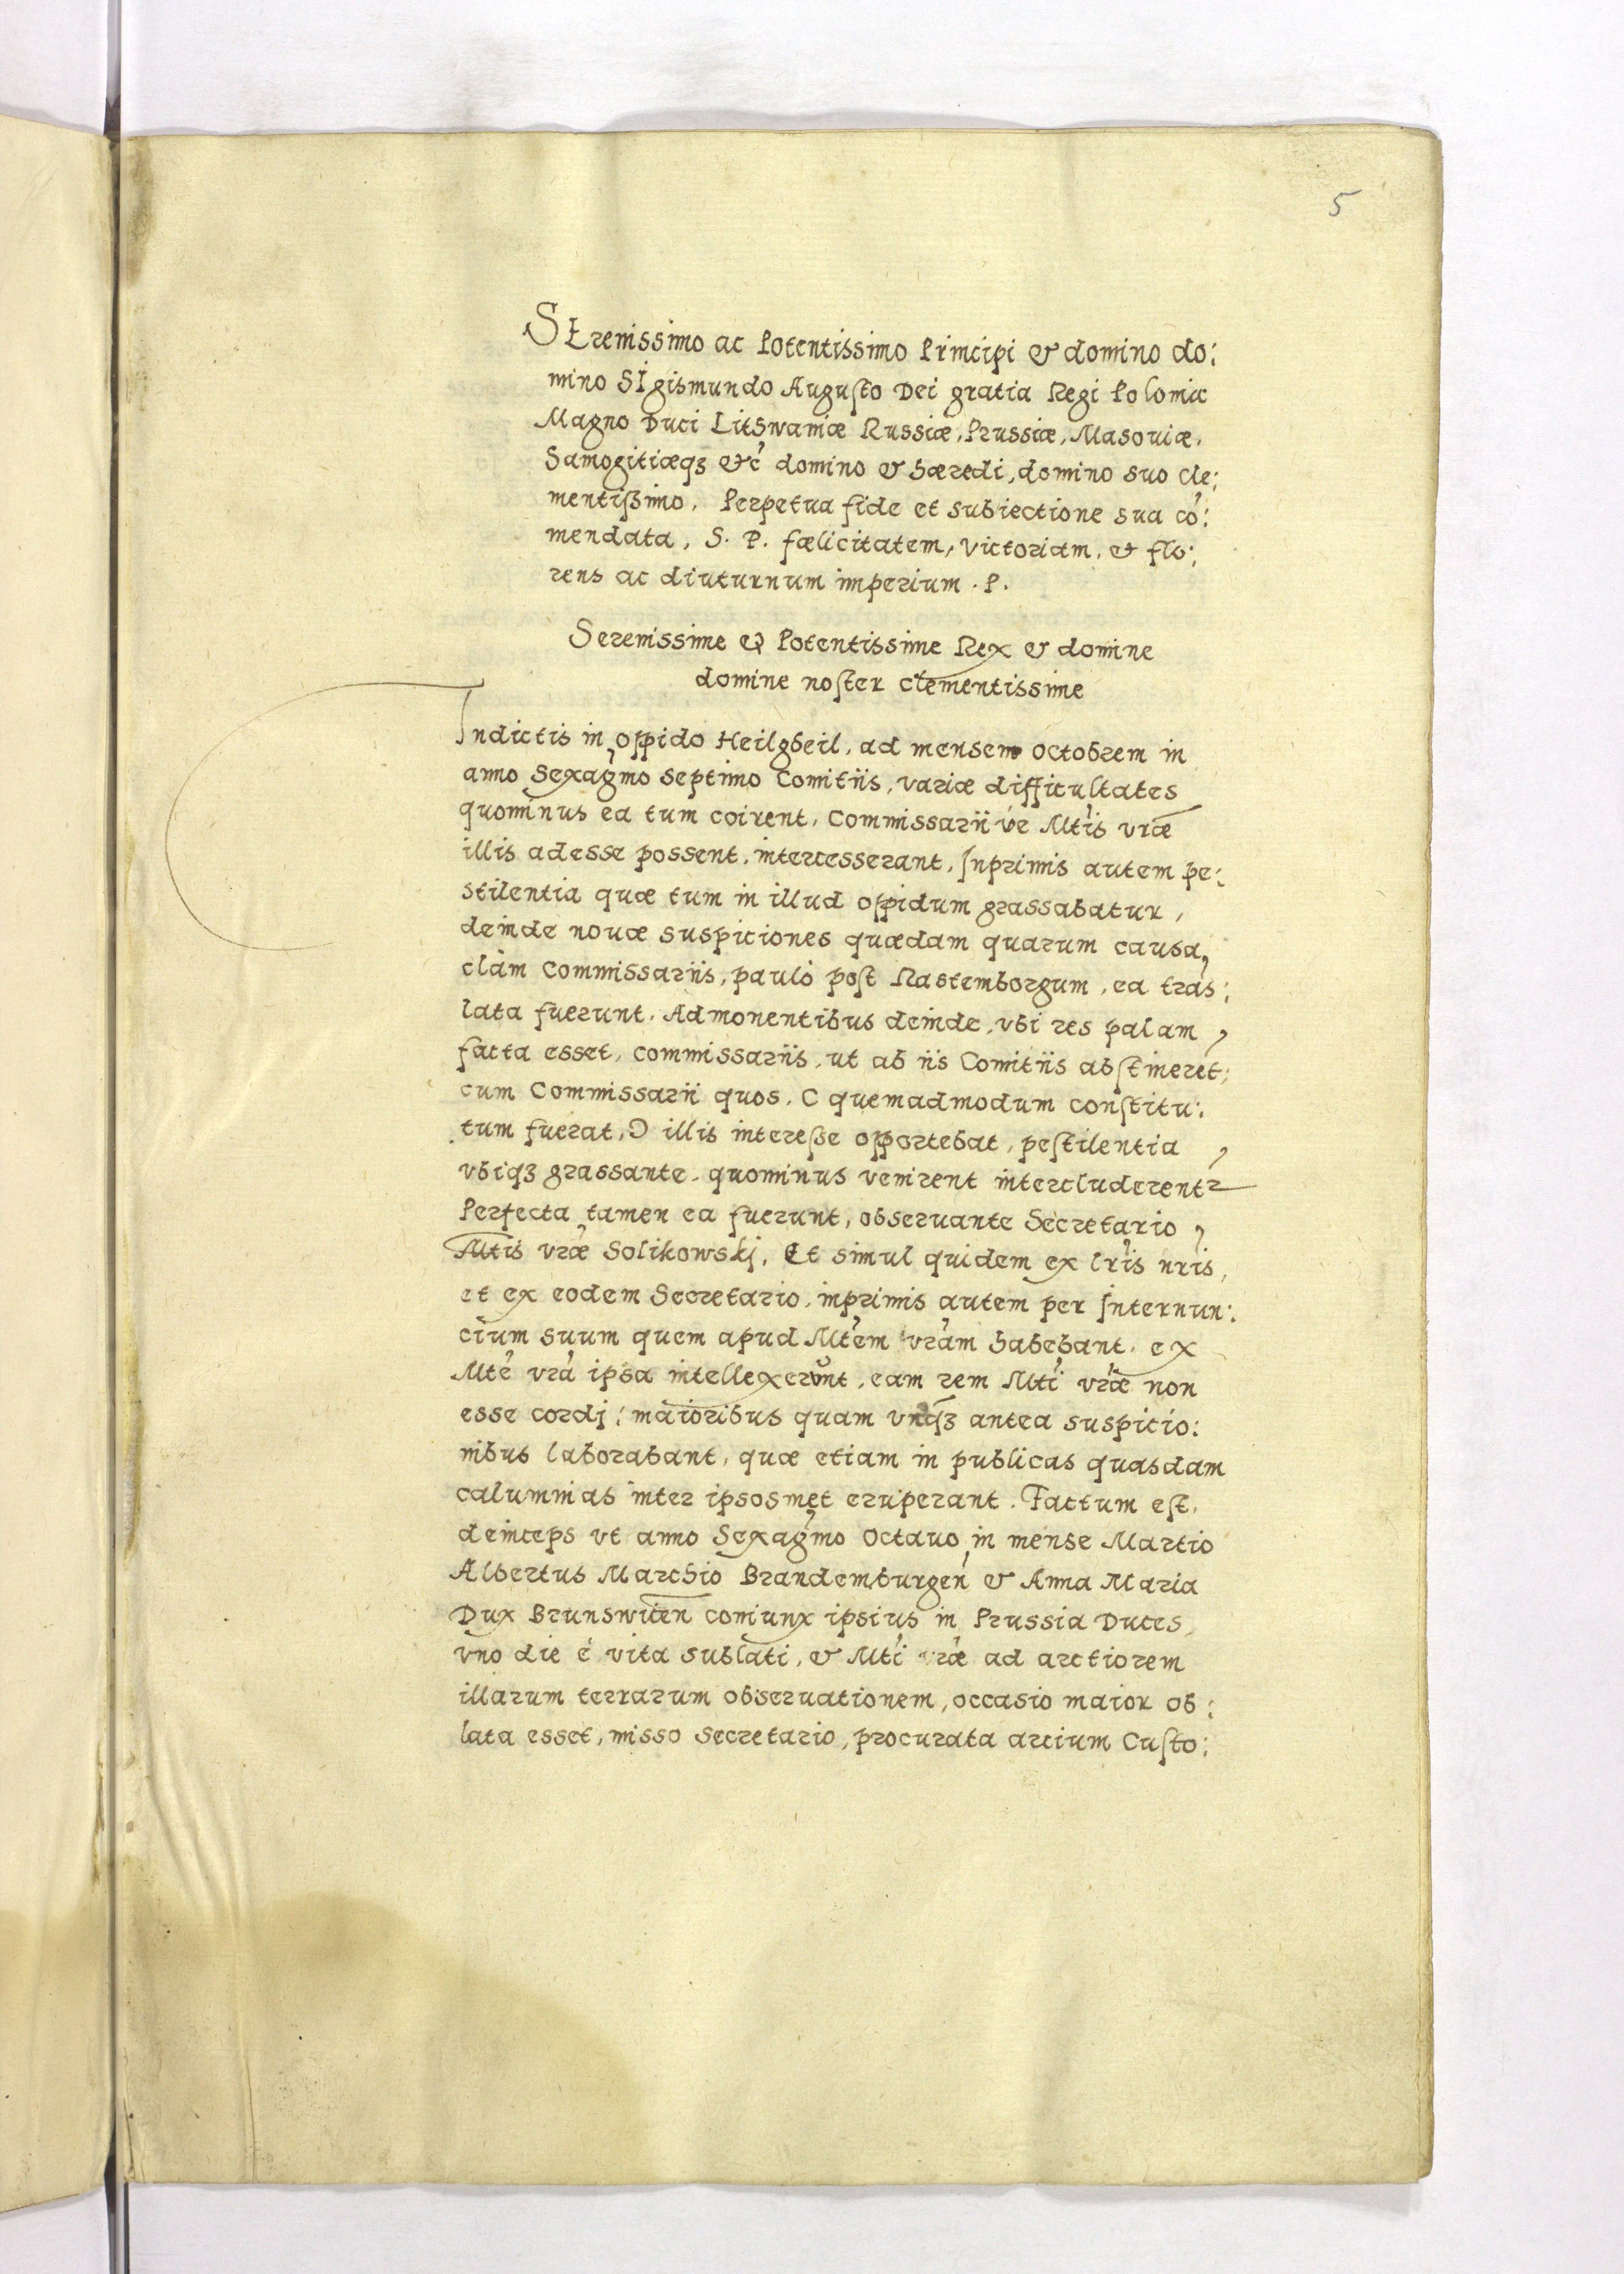 5
SErenissimo ac Potentissimo Principi & domino do:
mino SIgismundo Augusto Dei gratia Regi Poloniæ
Magno Duci Lithwaniæ Russiæ, Prussiæ, Masouiæ,
Samogitiæqꝫ &c̓ domino & hæredi, domino suo cle:
mentißimo. Perpetua fide et subiectione sua co̓:
mendata, S. P. fœlicitatem, victoriam, & flo:
rens ac diuturnum imperium . P.
Serenissime & Potentissime Rex & domine
domine noster clementissime
Indictis in oppido Heilgbeil, ad mensem Octobrem in
anno Sexag̓mo septimo Comitiis, variæ difficultates
quominus ea tum coirent, Commissarii ve̓ Mt̓is vr̓æ
illis adesse possent, intercesserant, Inprimis autem pe:
stilentia quæ tum in illud oppidum grassabatur,
deinde nouæ suspiciones quædam quarum causa,
clàm Commissariis, paulò post Rastemborgum, ea tra̓s:
lata fuerunt. Admonentibus deinde, vbi res palam,
facta esset, commissariis, ut ab iis Comitiis abstineret;
cum Commissarii quos, C quemadmodum constitu:
tum fuerat, Ɔ illis interesse opportebat, pestilentia,
vbiqꝫ grassante, quominus venirent intercluderentr
Perfecta tamen ea fuerunt, obseruante Secretario,
Mtis vr̓æ Solikowskj. Et simul quidem ex lr̓is nr̓is,
et ex eodem Secretario, inprimis autem per Internun:
cium suum quem apud Mt̓em vr̓am habebant, ex
Mte̓ vr̓a ipsa intellexerunt, eam rem Mt̓i vr̓æ non
esse cordj: maioribus quam vnqꝫ antea suspicio:
nibus laborabant, quæ etiam in publicas quasdam
calumnias inter ipsosmet eruperant. Factum est,
deinceps vt anno Sexag̓mo Octauo in mense Martio
Albertus Marchio Brandemburgen̓ & Anna Maria
Dux Brunswicen coniunx ipsius in Prussia Duces,
vno die è vita sublati, & Mt̓i vr̓æ ad arctiorem
illarum terrarum obseruationem, occasio maior ob:
lata esset, misso Secretario, procurata arcium Custo: